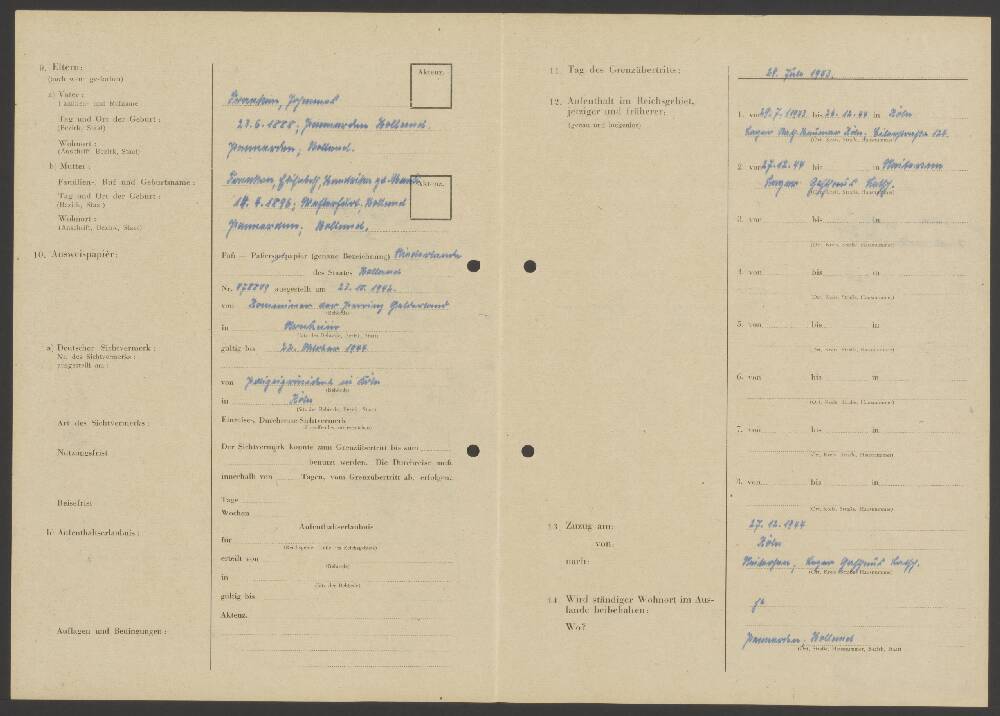 9. Eltern:
(auch wenn gestorben)
a) Vater:
Familien- und Rufname
Tag und Ort der Geburt:
(Bezirk, Staat)
Wohnort:
(Anschrift, Bezirk, Staat)
b) Mutter:
Familien-, Ruf und Geburtsname:
Tag und Ort der Geburt:
(Bezirk, Staat)
Wohnort:
(Anschrift, Bezirk, Staat)
10. Ausweispapier:
a) Deutscher Sichtvermerk:
Nr. des Sichtvermerks:
ausgestellt am:
Art des Sichtvermerks:
Nutzungsfrist
Reisefrist
b) Aufenthaltserlaubnis:
Auflagen und Bedingungen:
Aktenz.
Johannes
23.6.1888; Pannerden Holland.
Pannerden; Holland.
Aktenz.
Elisabeth, Hendrika geb.
18.4.1896; Westervoort, Holland
Pannerden; Holland.
Paß — Paßersatzpapier (genaue Bezeichnung) Niederlande
des Staates Holland
Nr. 878849 ausgestellt am 23.10.1942.
von der Provinz Gelderland
(Behörde)
in Arnheim
(Sitz der Behörde, Bezirk, Staat)
gültig bis 22. Oktober 1944
von Polizeipräsident in Köln
(Behörde)
in Köln
(Sitz der Behörde, Bezirk, Staat)
Einreise-, Durchreise-Sichtvermerk
Der Sichtvermerk konnte zum Grenzübertritt bis zum
benutzt werden. Die Durchreise muß
innerhalb von Tagen, vom Grenzübertritt ab, erfolgen.
Tage
Wochen
Aufenthaltserlaubnis
für
erteilt von
(Behörde)
in
(Sitz der Behörde)
gültig bis
Aktenz.
11. Tag des Grenzübertritts:
28. Juli 1943.
12. Aufenthalt im Reichsgebiet,
jetziger und früherer:
(genau und lückenlos)
1. von 29.7.1943 bis 26.12.44 in Köln
Lager Köln,
(Ort, Kreis, Straße, Hausnummer)
2. von 27.12.44 bis in
Lager Gasthaus
(Ort, Kreis, Straße, Hausnummer)
3. von bis in
(Ort, Kreis, Straße, Hausnummer)
4. von bis in
(Ort, Kreis, Straße, Hausnummer)
5. von bis in
(Ort, Kreis, Straße, Hausnummer)
6. von bis in
(Ort, Kreis, Straße, Hausnummer)
7. von bis in
(Ort, Kreis, Straße, Hausnummer)
8. von bis in
(Ort, Kreis, Straße, Hausnummer)
13. Zuzug am:
27.12.1944
von:
Köln
nach:
Lager Gasthaus
(Ort, Kreis, Straße, Hausnummer)
14. Wird ständiger Wohnort im Aus-
lande beibehalten:
ja
Wo?
Pannerden, Holland
(Ort, Straße, Hausnummer, Bezirk, Staat)